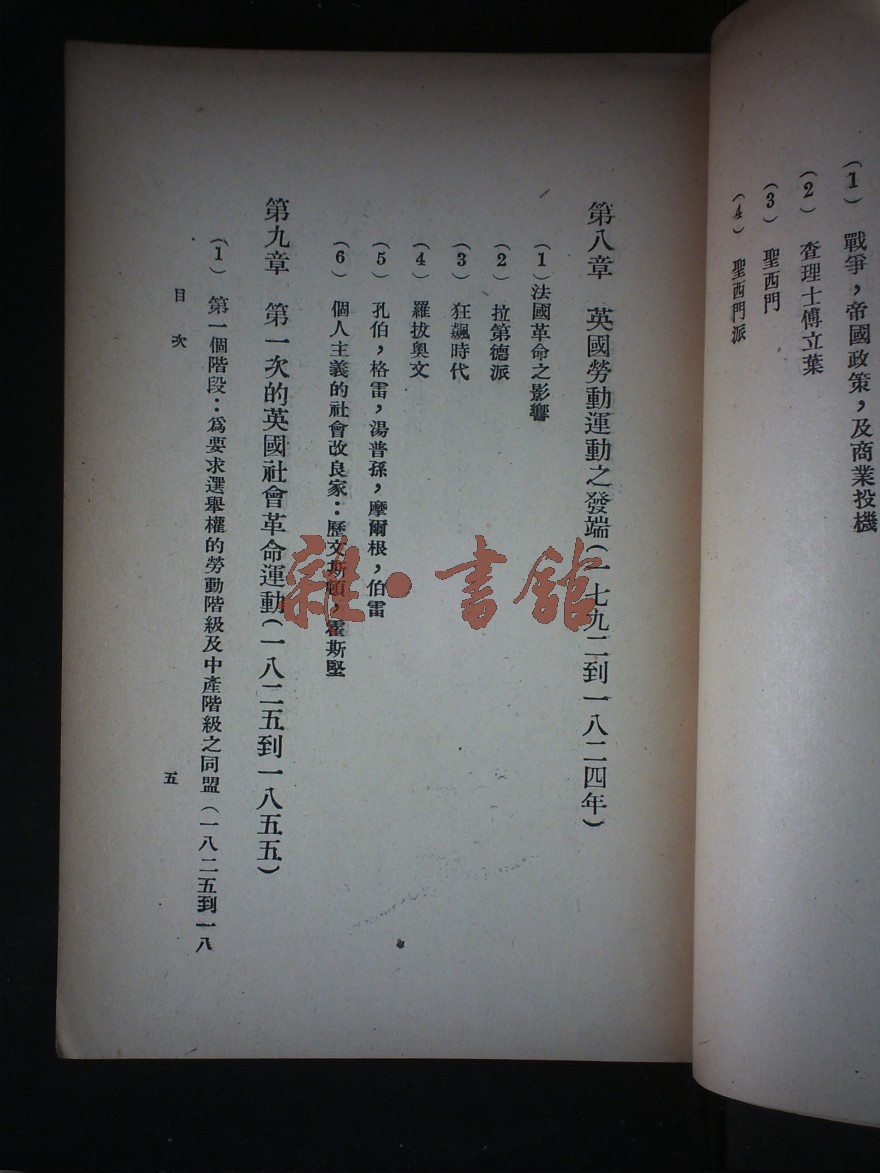 (1) 戰爭,帝國政策,及商業投機
(2) 查理士傅立葉
(3) 聖西門
(4) 聖西門派
第八章 英國勞動運動之發端(一七九二到一八二四年)
(1)法國革命之影響
(2) 拉第德派
(3) 狂飆時代
(4) 羅拔奧文
(5) 孔伯,格雷,湯普孫,摩爾根,伯雷
(6) 個人主義的社會改良家:歷文斯頓,霍斯堅
第九章 第一次的英國社會革命運動(一八二五到一八五五)
(1) 第一個階段:爲要求選舉權的勞動階級及中產階級之同盟(一八二五到一八
目次 五
雜·書館